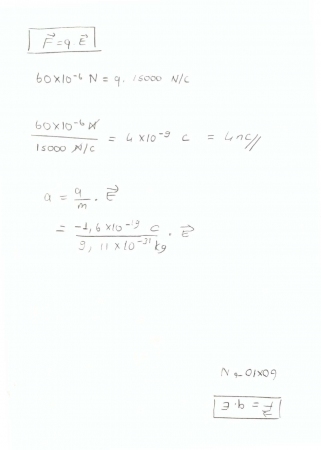 F⃗ = q . E⃗
60x10⁻⁶ N = q. 15000 N/C
60x10⁻⁶ N / 15000 N/C = 4 x10⁻⁹ C = 4nC//
a = q/m . E⃗
= -1,6 x10⁻¹⁹ C / 9,11 x10⁻³¹ kg . E⃗
60x10⁻⁶ N
F⃗ = q.E